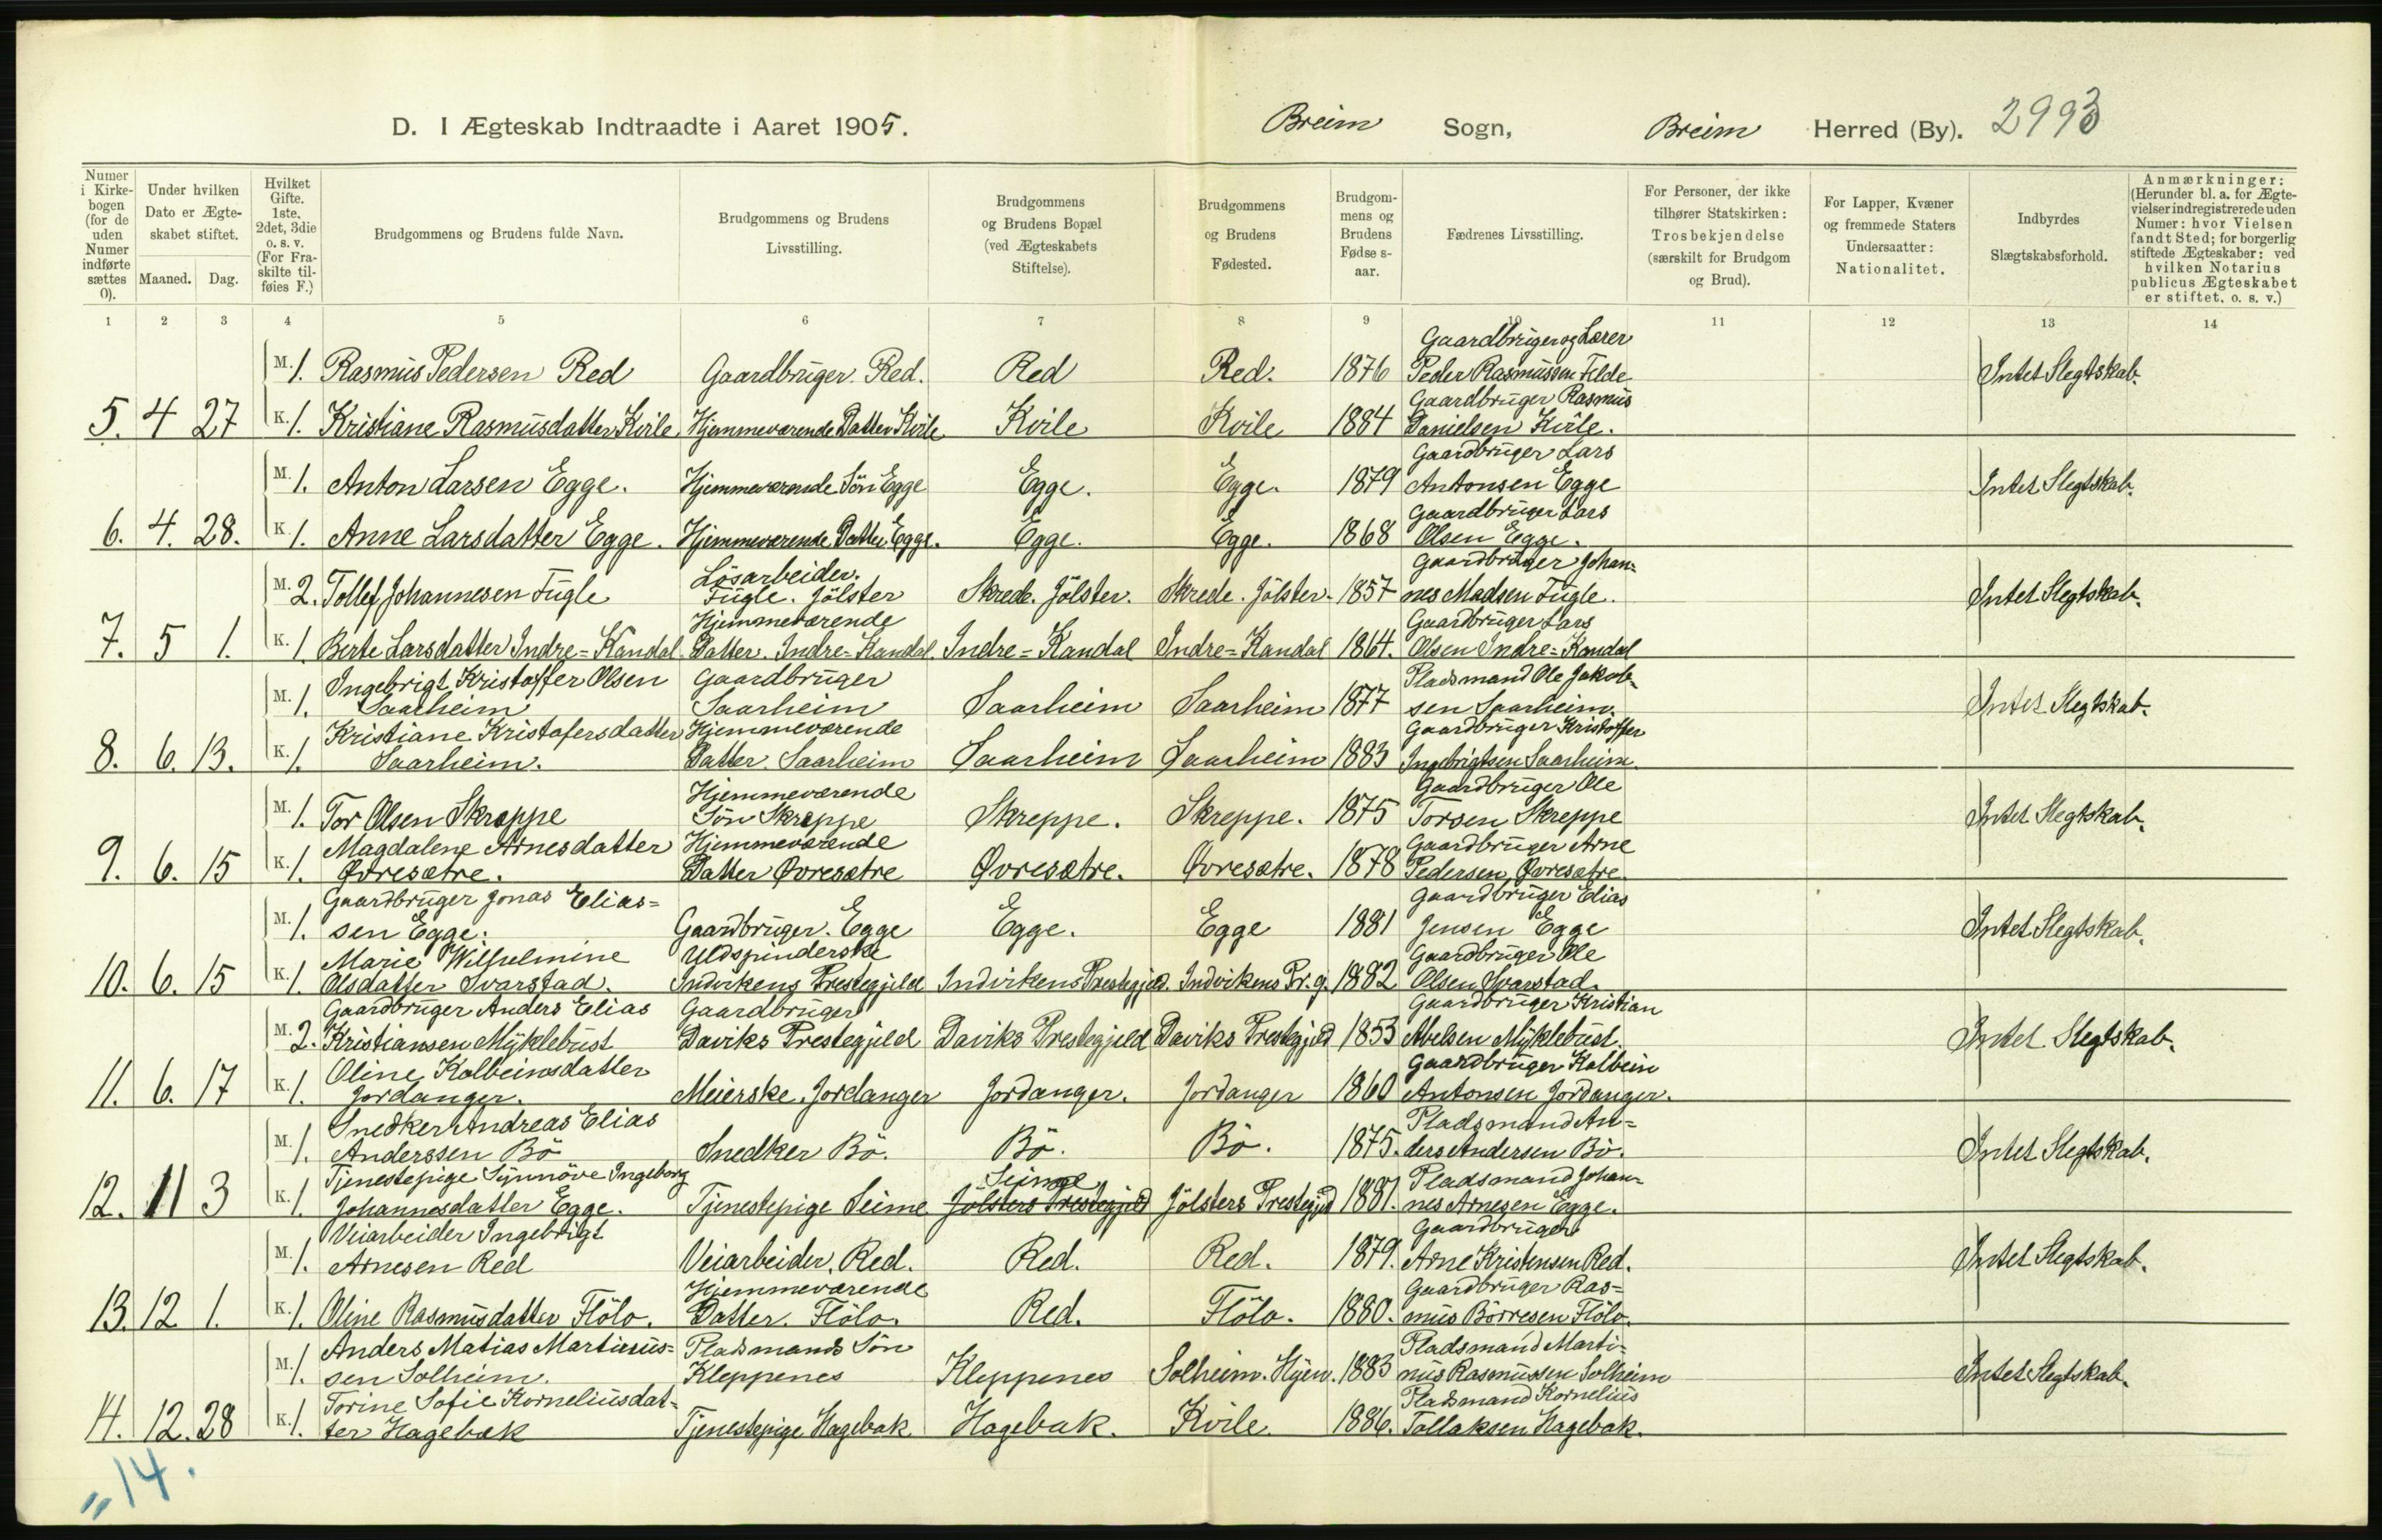 D. I Ægteskab Indtraadte i Aaret 1905. Breim Sogn, Breim Herred (By). 2993
Numer i Kirkebogen (for de uden Numer indførte sættes 0).
Under hvilken Dato er Ægteskabet stiftet.
Maaned. Dag.
Hvilket Gifte. 1ste, 2det, 3die o. s. v. (For Fraskilte tilføies F.)
Brudgommens og Brudens fulde Navn.
Brudgommens og Brudens Livsstilling.
Brudgommens og Brudens Bopæl (ved Ægteskabets Stiftelse).
Brudgommens og Brudens Fødested.
Brudgommens og Brudens Fødselsaar.
Fædrenes Livsstilling.
For Personer, der ikke tilhører Statskirken: Trosbekjendelse (særskilt for Brudgom og Brud).
For Lapper, Kvæner og fremmede Staters Undersaatter: Nationalitet.
Indbyrdes Slægtskabsforhold.
Anmærkninger: (Herunder bl. a. for Ægtevielser indregistrerede uden Numer: hvor Vielsen fandt Sted; for borgerlig stiftede Ægteskaber: ved hvilken Notarius publicus Ægteskabet er stiftet, o. s. v.)
1 2 3 4 5 6 7 8 9 10 11 12 13 14
M. 1. Rasmus Pedersen Red Gaardbruger. Red. Red Red. 1876 Gaardbruger og Lærer Peder Rasmussen Felde Intet Slegtskab.
5. 4 27 K. 1. Kristiane Rasmusdatter Kvile. Hjemmeværende Datter Kvile Kvile Kvile 1884 Gaardbruger Rasmus Danielsen Kvile.
M. 1. Anton Larsen Egge. Hjemmeværende Søn Egge Egge. Egge. 1879 Gaardbruger Lars Antonsen Egge Intet Slegtskab.
6. 4. 28. K. 1. Anne Larsdatter Egge. Hjemmeværende Datter Egge. Egge. Egge. 1868 Gaardbruger Lars Olsen Egge.
M. 2. Tollef Johannesen Fugle Lösarbeider. Fugle. Jölster Skrede. Jölster. Skrede. Jölster. 1857 Gaardbruger Johannes Madsen Fugle. Intet Slegtskab.
7. 5 1. K. 1. Berte Larsdatter Indre=Kandal Hjemmeværende Datter. Indre=Kandal. Indre=Kandal Indre=Kandal 1864. Gaardbruger Lars Olsen Indre=Kandal
M. 1. Ingebrigt Kristoffer Olsen Saarheim Gaardbruger Saarheim Saarheim Saarheim 1877 Pladsmand Ole Jakobsen Saarheim. Intet Slegtskab.
8. 6. 13. K. 1. Kristiane Kristofersdatter Saarheim. Hjemmeværende Datter. Saarheim Saarheim Saarheim 1883 Gaardbruger Kristoffer Ingebrigtsen Saarheim.
M. 1. Tor Olsen Skreppe Hjemmeværende Søn Skreppe Skreppe. Skreppe. 1875 Gaardbruger Ole Torsen Skreppe Intet Slegtskab.
9. 6. 15 K. 1. Magdalene Arnesdatter Øvresætre. Hjemmeværende Datter Øvresætre Øvresætre. Øvresætre. 1878 Gaardbruger Arne Pedersen Øvresætre.
M. 1. Gaardbruger Jonas Elias=sen Egge. Gaardbruger. Egge Egge. Egge 1881 Gaardbruger Elias Jensen Egge Intet Slegtskab.
10. 6. 15 K. 1. Marie Wilhelmine Olsdatter Svarstad. Uldspinderske Indvikens Prestegjeld Indvikens Prestegjeld. Indvikens Pr.g. 1882 Gaardbruger Ole Olsen Svarstad.
M. 2. Gaardbruger Anders Elias Kristiansen Myklebust Gaardbruger Daviks Prestegjeld Daviks Prestegjeld Daviks Prestegjeld 1853 Gaardbruger Kristian Abelsen Myklebust. Intet Slegtskab.
11. 6. 17 K. 1. Oline Kolbeinsdatter Jordanger. Meierske. Jordanger Jordanger. Jordanger 1860 Gaardbruger Kolbein Antonsen Jordanger.
M. 1. Snedker Andreas Elias Anderssen Bö Snedker Bö. Bö. Bö. 1875. Pladsmand An=ders Andersen Bö. Intet Slegtskab.
12. 11 3 K. 1. Tjenestepige Synnöve Ingeborg Johannesdatter Egge. Tjenestepige Seime Seime Jölsters Prestegjeld Jölsters Prestegjeld 1881. Pladsmand Johan=nes Arnesen Egge.
M. 1. Veiarbeider Ingebrigt Arnesen Red Veiarbeider, Red. Red. Red. 1879. Gaardbruger Arne Kristensen Red. Intet Slegtskab.
13. 12 1. K. 1. Oline Rasmusdatter Flölo. Hjemmeværende Datter. Flölo. Red. Flölo. 1880. Gaardbruger Ras=mus Börresen Flölo.
M. 1. Anders Matias Martinus=sen Solheim. Pladsmands Søn Kleppenes Kleppenes Solheim. Hyen. 1883 Pladsmand Marti=nus Rasmussen Solheim Intet Slegtskab.
14. 12. 28 K. 1. Torine Sofie Korneliusdat=ter Hagebak Tjenestepige Hagebak Hagebak. Kvile. 1886. Pladsmand Kornelius Tollaksen Hagebak.
= 14.